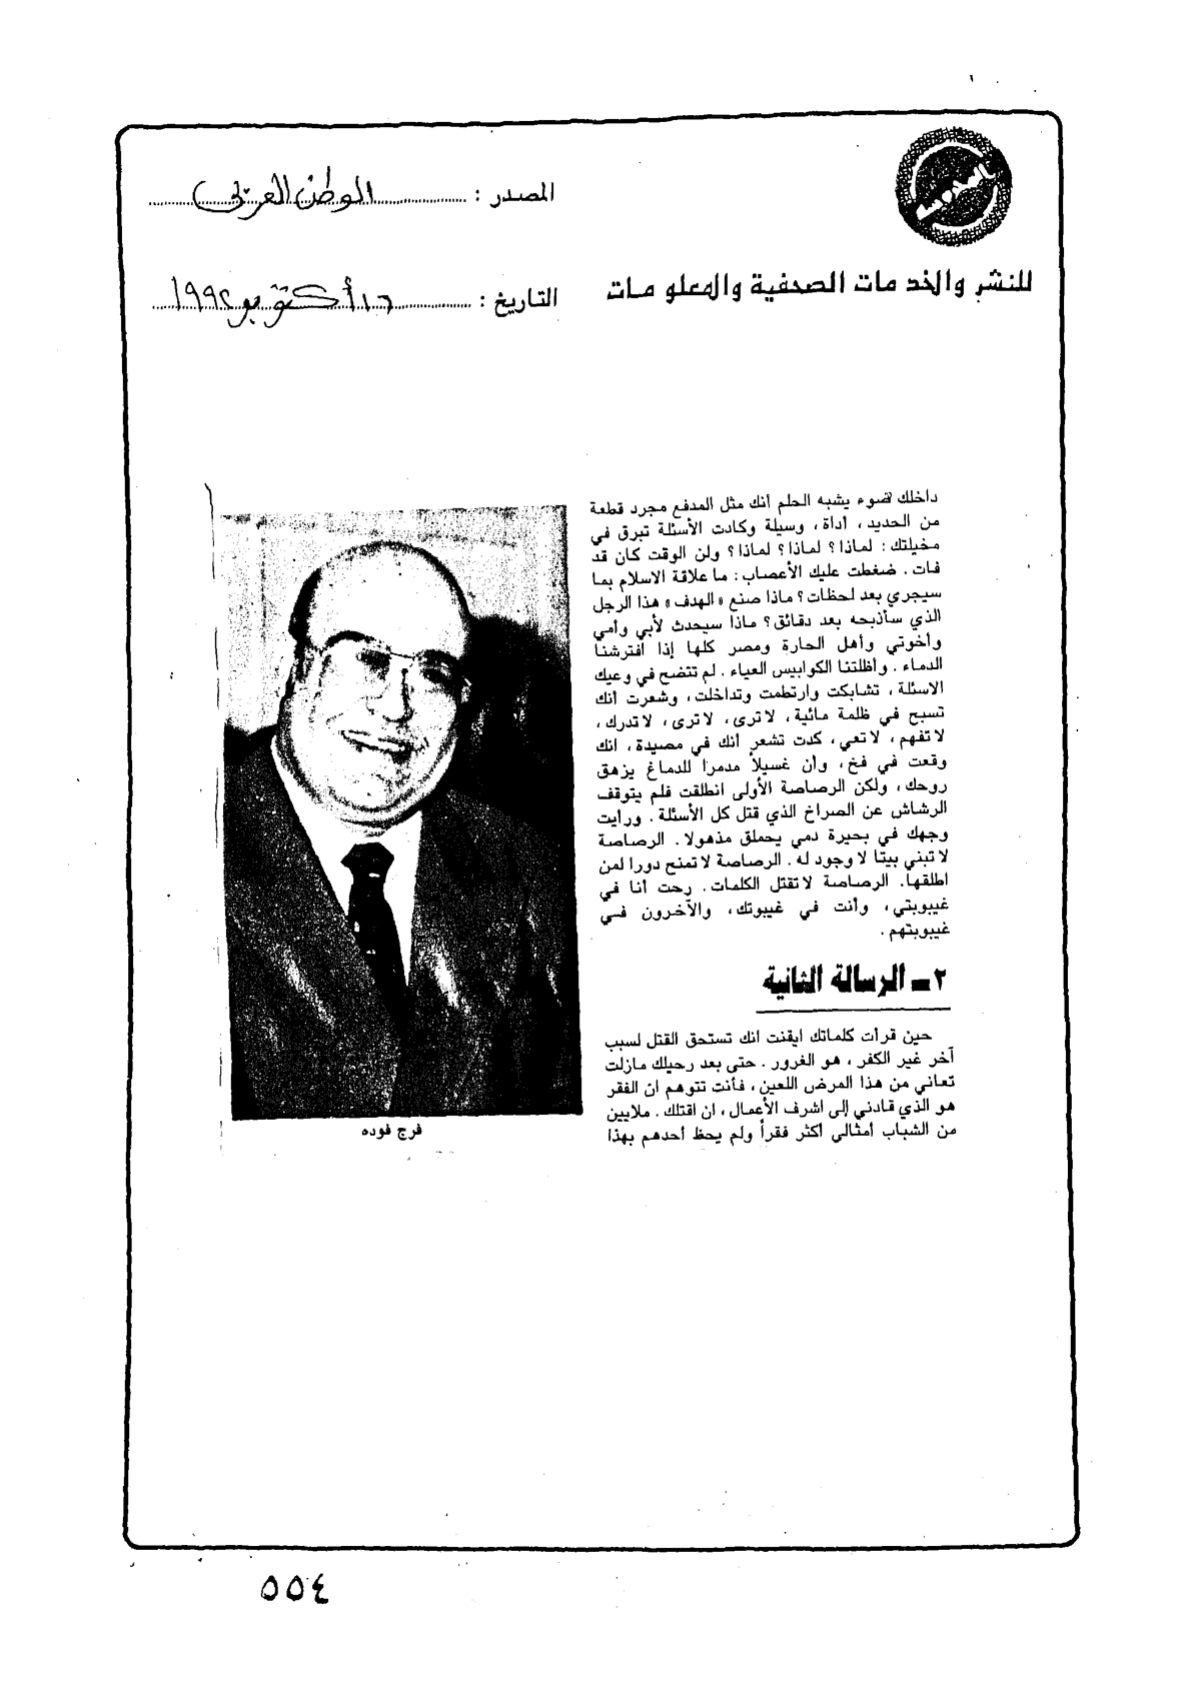 المصدر : الوطن العربي
للنشر والخدمات الصحفية والمعلومات
التاريخ : ١٦ أكتوبر ١٩٩٢
داخلك ضوء يشبه الحلم أنك مثل المدفع مجرد قطعة
من الحديد ، أداة ، وسيلة وكادت الأسئلة تبرق في
مخيلتك : لماذا ؟ لماذا ؟ لماذا ؟ ولن الوقت كان قد
فات . ضغطت عليك الأعصاب : ما علاقة الاسلام بما
سيجري بعد لحظات ؟ ماذا صنع « الهدف » هذا الرجل
الذي سأذبحه بعد دقائق ؟ ماذا سيحدث لأبي وأمي
وأخوتي وأهل الحارة ومصر كلها إذا افترشنا
الدماء . وأظلتنا الكوابيس العياء . لم تتضح في وعيك
الاسئلة ، تشابكت وارتطمت وتداخلت ، وشعرت أنك
تسبح في ظلمة مائية ، لا ترى ، لا ترى ، لا تدرك ،
لا تفهم ، لا تعي ، كدت تشعر أنك في مصيدة ، انك
وقعت في فخ ، وأن غسيلاً مدمرا للدماغ يزهق
روحك ، ولكن الرصاصة الأولى انطلقت فلم يتوقف
الرشاش عن الصراخ الذي قتل كل الأسئلة . ورأيت
وجهك في بحيرة دمي يحملق مذهولا . الرصاصة
لا تبني بيتا لا وجود له . الرصاصة لا تمنح دورا لمن
اطلقها. الرصاصة لا تقتل الكلمات . رحت أنا في
غيبوبتي ، وأنت في غيبوتك ، والآخرون في
غيبوبتهم .
٢ ــ الرسالة الثانية
حين قرأت كلماتك ايقنت انك تستحق القتل لسبب
آخر غير الكفر ، هو الغرور . حتى بعد رحيلك مازلت
تعاني من هذا المرض اللعين ، فأنت تتوهم ان الفقر
هو الذي قادني إلى اشرف الأعمال ، ان اقتلك . ملايين
من الشباب أمثالي أكثر فقرأ ولم يحظ أحدهم بهذا
فرج فوده
٥٥٤